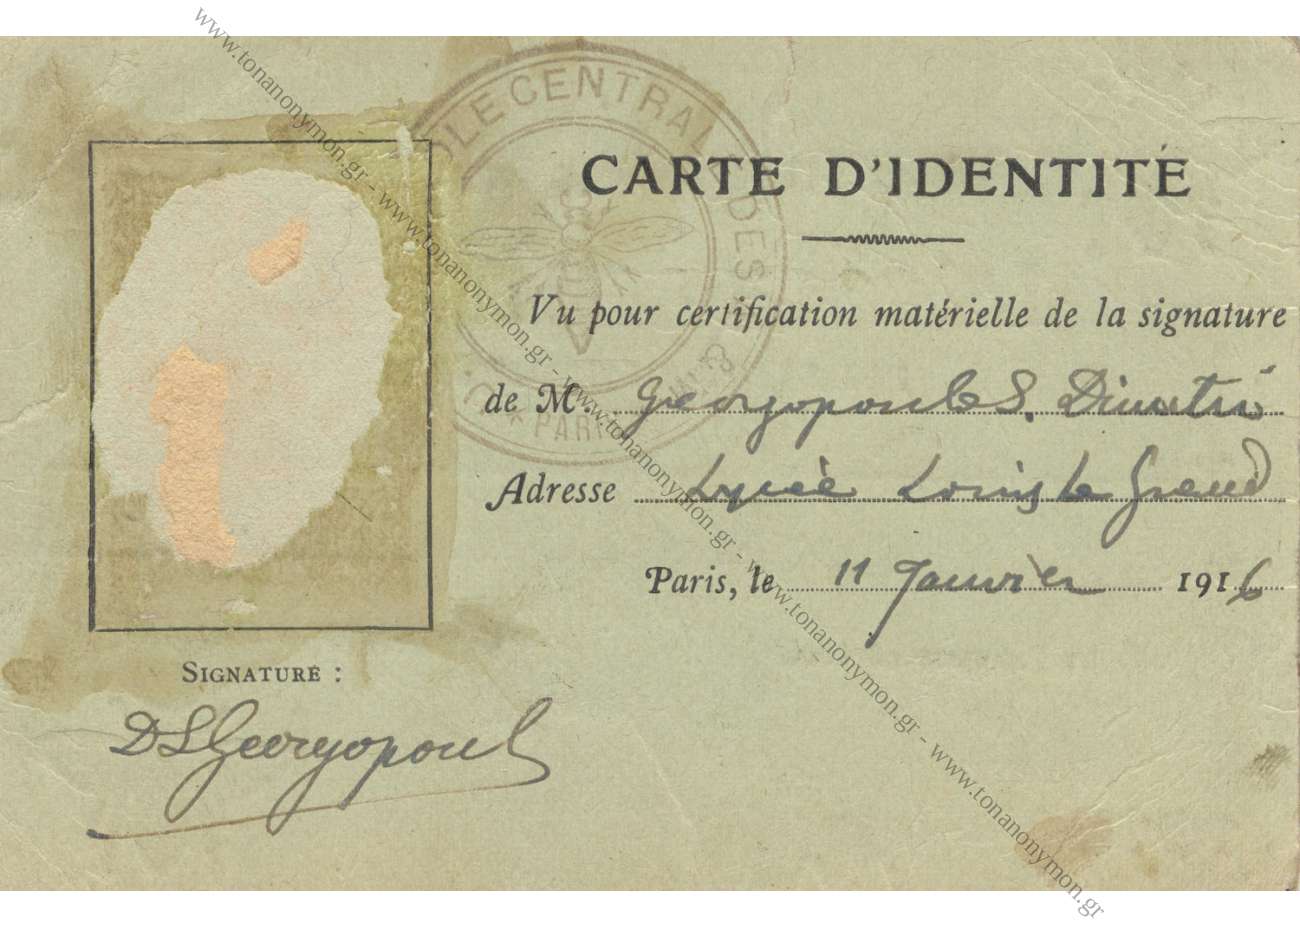 www.tonanonymon.gr - www.tonanonymon.gr - www.tonanonymon.gr - www.tonanonymon.gr - www.tonanonymon.gr
OLE CENTRAL DES
PARIS
CARTE D'IDENTITÉ
Vu pour certification matérielle de la signature
de M. Georgopoulo S. Dimitri
Adresse Lycée Louis le Grand
Paris, le 11 Janvier 1916
SIGNATURE :
D S Georgopoul